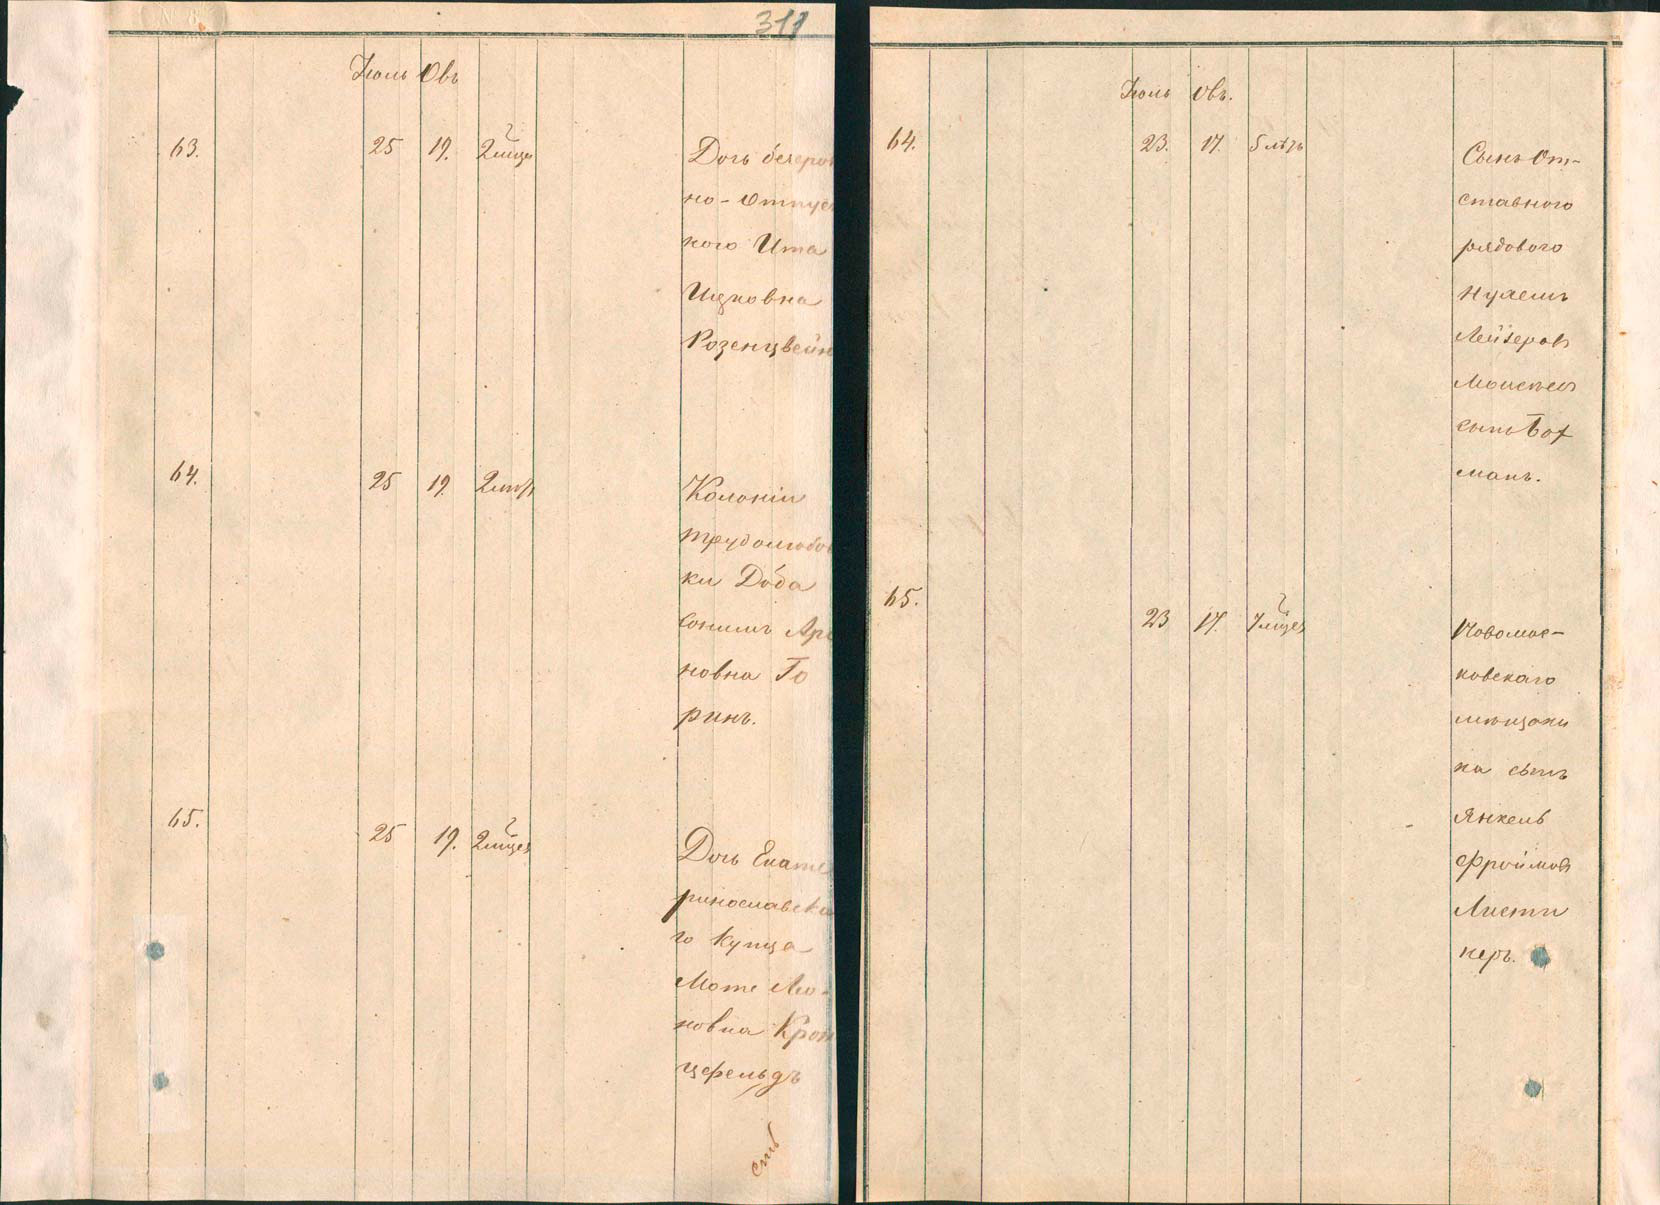 311
Іюль Овъ
63. 25 19. 2 мѣся
Дочь безсроч
но-отпуск
ного Ита
Ицковна
Розенцвейн
64. 25 19. 2
Колоніи
Трудолюбов
ки Доба
Аро
новна Го
ринъ.
65. 25 19. 2 мѣсяц
Дочь Екате
ринославска
го Купца
Моте Лео-
новна Крон
цфельдъ
Іюль Овъ.
64. 23. 17. 5 лѣтъ
Сынъ От-
ставного
рядового
Нухемъ
Лейзеров
Моисѣев
сынъ Бог
манъ.
65. 23 17. 7 мѣсяц
Новомос-
ковскаго
мѣщани
на сынъ
Янкель
Фроймов
Листи
керъ.